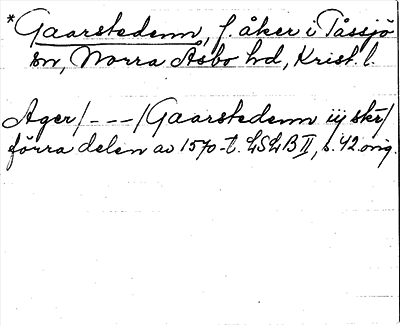 *Gaarstedenn, f. åker i Tåssjö
sn, Norra Åsbo hd, Krist. l.
Ager /---/ Gaarstedenn iij skr/
förra delen av 1570-t. LSLB II, s. 42 orig.